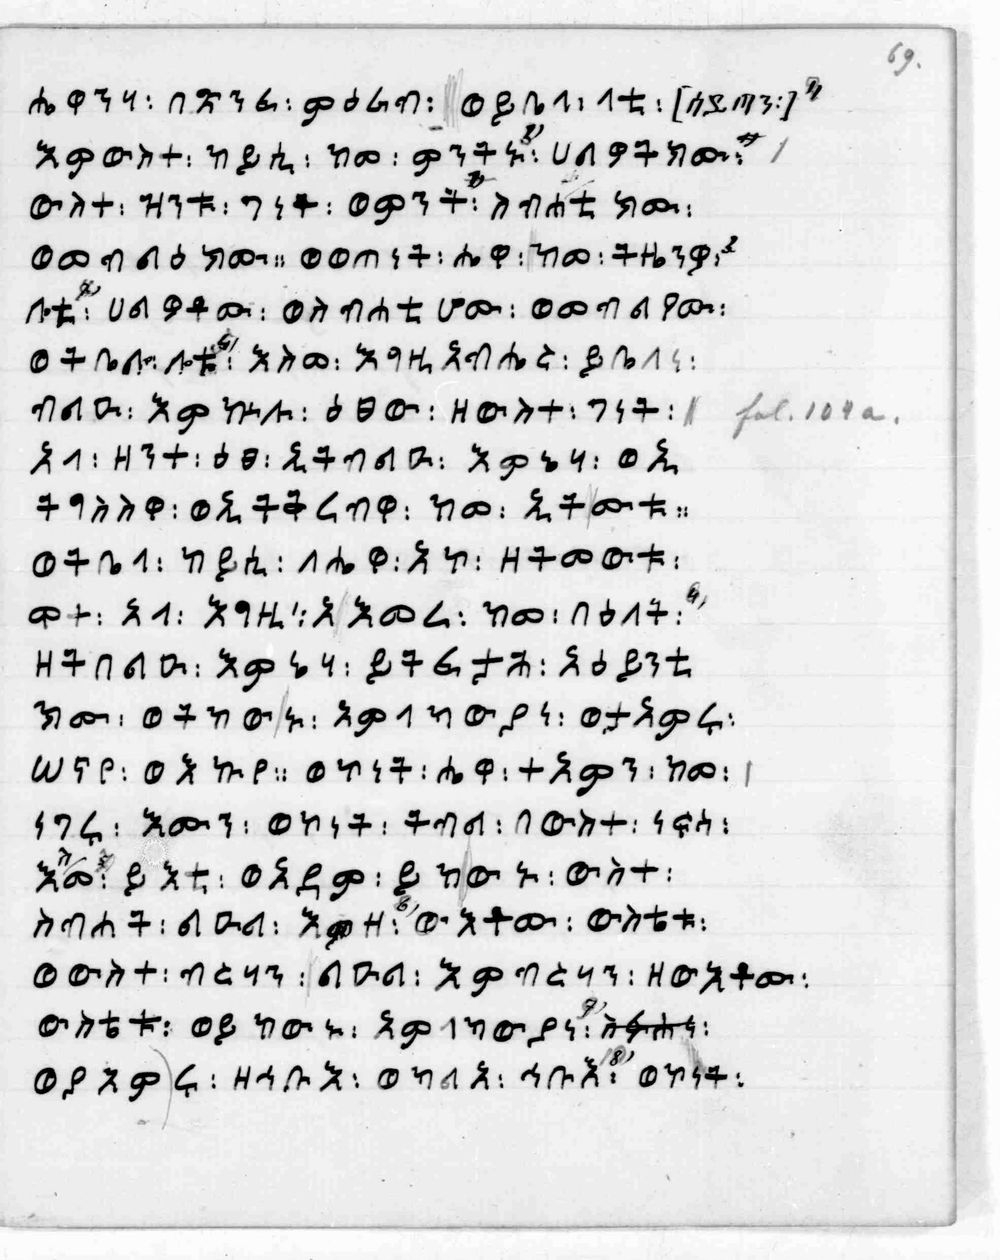 69.
ሔዋንሃ፡ በጽንፈ፡ ምዕራብ፡ ወይቤላ፡ ላቲ፡ [ሰይጣን፡]
እምውስተ፡ ከይሲ፡ ከመ፡ ምንት ኑ፡ ሀልዎትክሙ፡
ውስተ፡ ዝንቱ፡ ገነት፡ ወምንት፡ ስብሐቲክሙ፡
ወመብልዕክሙ። ወወጠነት፡ ሔዋ፡ ከመ፡ ትዜንዎ፡
ሎቲ፡ ሀልዎቶሙ፡ ወስብሐቲሆሙ፡ ወመብልዖሙ፡
ወትቤሎ፡ ሎቲ፡ እስመ፡ እግዚአብሔር፡ ይቤለነ፡
ብልዑ፡ እምኵሉ፡ ዕፀው፡ ዘውስተ፡ ገነት፡ fol. 104 a.
አላ፡ ዘንተ፡ ዕፀ፡ ኢትብልዑ፡ እምኔሃ፡ ወኢ
ትግስስዋ፡ ወኢትቅረብዋ፡ ከመ፡ ኢትሙቱ።
ወትቤላ፡ ከይሲ፡ ለሔዋ፡ አኮ፡ ዘትመውቱ፡
ሞተ፡ አላ፡ እግዚ፡ አእመረ፡ ከመ፡ በዕለት፡
ዘትበልዑ፡ እምኔሃ፡ ይትፈታሕ፡ አዕይንቲ
ክሙ፡ ወትከውኑ፡ አምላከውያነ፡ ወታአምሩ፡
ሠናየ፡ ወእኩየ። ወኮነት፡ ሔዋ፡ ተአምን፡ ከመ፡
ነገሩ፡ እሙን፡ ወኮነት፡ ትብል፡ በውስተ፡ ነፍሳ፡
እመ፡ ይእቲ፡ ወአዳም፡ ይከውኑ፡ ውስተ፡
ስብሐት፡ ልዑል፡ እምዘ፡ ውእቶሙ፡ ውስቴቱ፡
ወውስተ፡ ብርሃን፡ ልዑል፡ እምብርሃን፡ ዘውእቶሙ፡
ውስቴቱ፡ ወይከውኑ፡ አምላከውያነ፡
ወያእምሩ፡ ዘኅቡእ፡ ወከልአ፡ ኅቡእ፡ ወኮነት፡